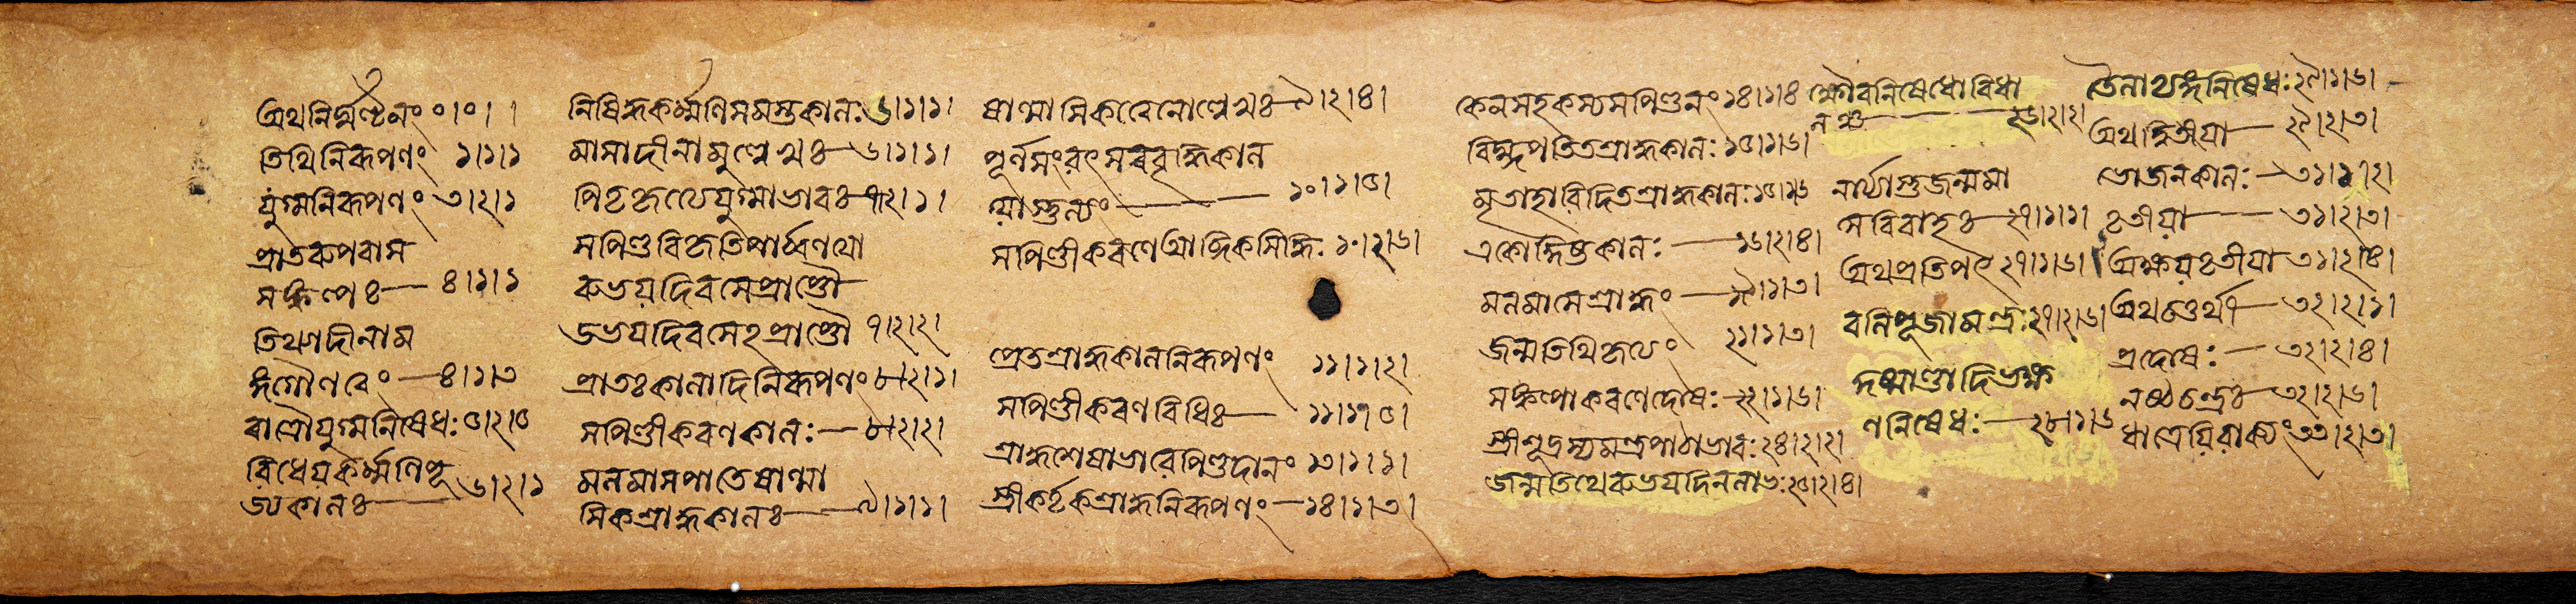 অথনির্ঘণ্টনং ০।০।।
তিথিনিরূপণং ১।১।১
যুগ্মনিরূপণং ৩।২।১
প্রাতরুপবাস
সঙ্কল্পঃ— ৪।১।১
তিথ্যাদীনাম
ঙ্গগৌণত্বেং —৪।১।৩
রাত্রৌযুগ্মনিষেধঃ ৫।২।৫
বিধেয়কর্ম্মণিপূ
জ্যকালঃ— ৬।২।১
নিষিদ্ধকর্ম্মণিসমস্তকালঃ ৬।১।১।
মাসাদীনামুল্লেখঃ— ৬।১।১।
পিতৃকৃত্যেযুগ্মাভাবঃ— ৭।২।১।
সপিণ্ডবিকৃতিপার্ব্বণয়ো
রুভয়দিবসেপ্রাপ্তৌ—
উভয়দিবসেঽপ্রাপ্তৌ ৭।২।২।
প্রাতঃকালাদিনিরূপণং ৮।২।১।
সপিণ্ডীকরণকালঃ— ৮।২।২।
মলমাসপাতেষাণ্মা
সিকশ্রাদ্ধকালঃ— ৯।১।১।
ষাণ্মাসিকত্বেনোল্লেখঃ— ৯।২।৪।
পূর্ণসংবৎসরবৃদ্ধিকাল
য়োস্তুল্যং— ১০।১।৫।
সপিণ্ডীকরণেআব্দিকসিদ্ধিঃ ১০।২।৬।
প্রেতশ্রাদ্ধকালনিরূপণং ১১।১।২।
সপিণ্ডীকরণবিধিঃ— ১১।১।৫।
শ্রাদ্ধশেষাভাবেপিণ্ডদানং ১৩।১।১।
স্ত্রীকর্তৃকশ্রাদ্ধনিরূপণং —১৪।১।৩।
কেনসহকস্যসপিণ্ডনং ১৪।১।৪
বিঘ্নপতিতশ্রাদ্ধকালঃ ১৫।১।৬।
মৃতাহাবিদিতশ্রাদ্ধকালঃ ১৫।১।৬
একোদ্দিষ্টকালঃ —১৬।২।৪।
মলমাসেশ্রাদ্ধং —১৯।১।৩।
জন্মতিথিকৃত্যং ২১।১।৩।
সঙ্কল্পাকরণেদোষঃ—২২।১।৬।
স্ত্রীশূদ্রস্যমন্ত্রপাঠাভাবঃ ২৪।২।২।
জন্মতিথেরুভয়দিনলাভঃ ২৫।২।৪।
ক্ষৌরনিষেধোবিধা
নঞ্চ— ২৬।২।২।
নার্য্যাস্তুজন্মমা
সবিবাহঃ— ২৭।১।১।
অথপ্রতিপৎ ২৭।১।৬।
বলিপূজামন্ত্রঃ ২৭।২।৬।
কুষ্মাণ্ডাদিভক্ষ
ণনিষেধঃ— ২৮।১।৬
তৈলাভ্যঙ্গনিষেধঃ ২৯।১।৬।
অথদ্বিতীয়া— ২৯।২।৩।
ভোজনকালঃ— ৩১।১।২।
তৃতীয়া— ৩১।২।৩।
অক্ষয়তৃতীয়া ৩১।২।৪।
অথচতুর্থী— ৩২।২।১।
প্রদোষঃ— ৩২।২।৪।
নষ্টচন্দ্রঃ— ৩২।২।৬।
ধাত্রেয়িবাক্যং ৩৩।২।৩।